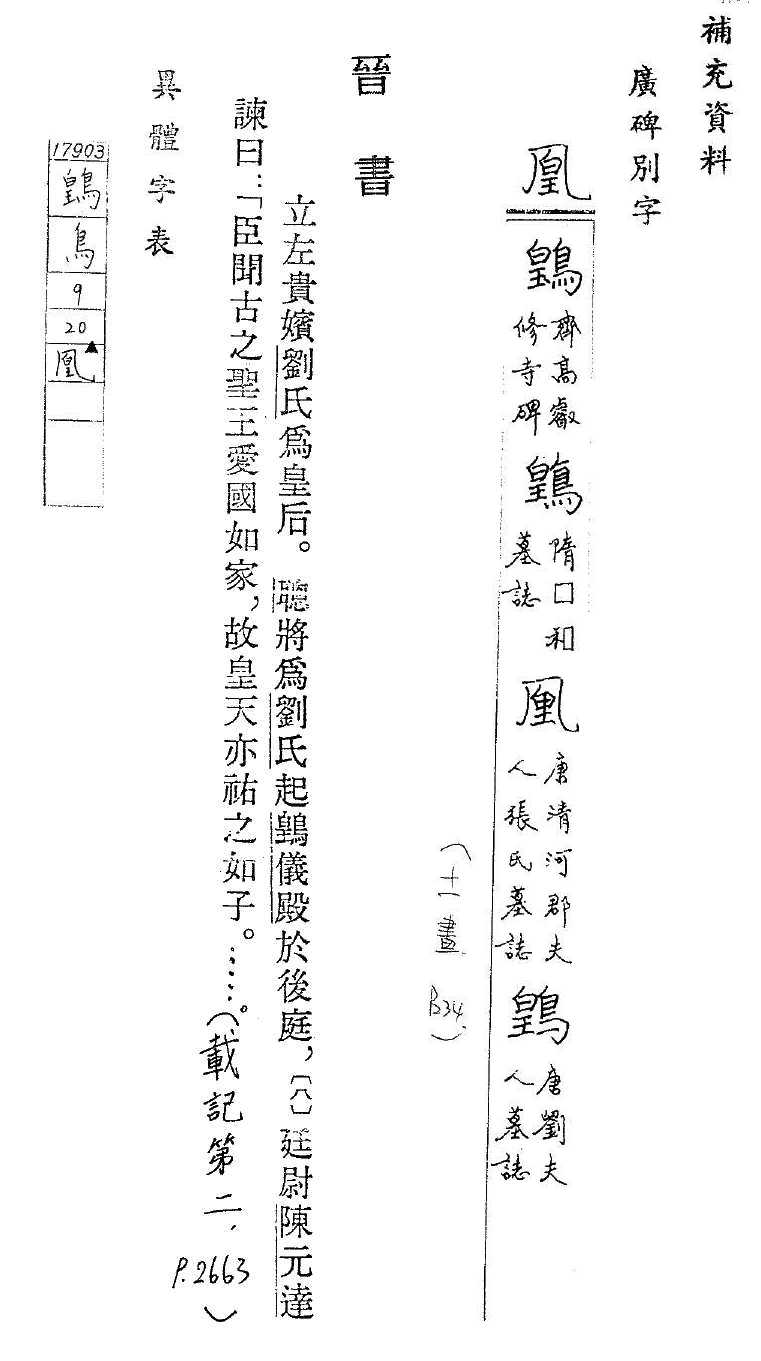 補充資料
廣碑別字
凰
䳨 齊高叡
修寺碑
䳨 隋囗和
墓誌
凰 唐清河郡夫
人張氏墓誌
䳨 唐劉夫
人墓誌
(十一畫 B34.)
晉書
立左貴嬪劉氏為皇后。聰將為劉氏起䳨儀殿於後庭,〔八〕廷尉陳元達
諫曰:「臣聞古之聖王愛國如家,故皇天亦祐之如子。……。(載記第二. P.2663)
異體字表
17903
䳨
鳥
9
20
凰